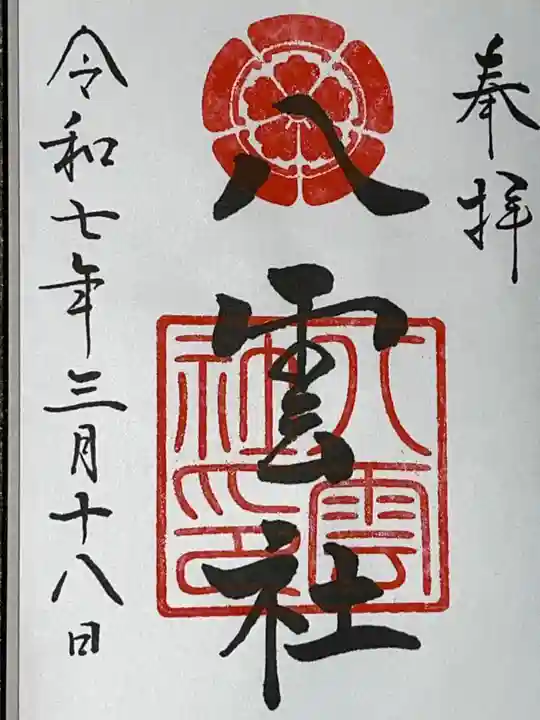 奉拝
八雲社
八雲社印
令和七年三月十八日